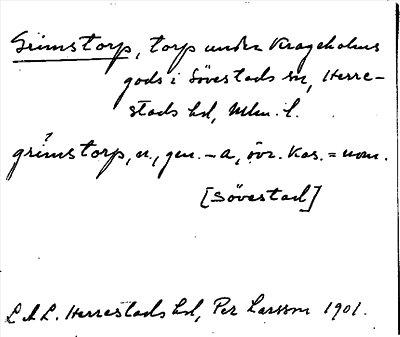 Grimstorp, torp under Krageholms
gods i Sövestads sn, Herre-
stads hd, Mlm. l.
grímstorp, n., gen. -a, övr. kas. = nom.
[Sövestad]
L.A.L. Herrestads hd, Per Larsson 1901.